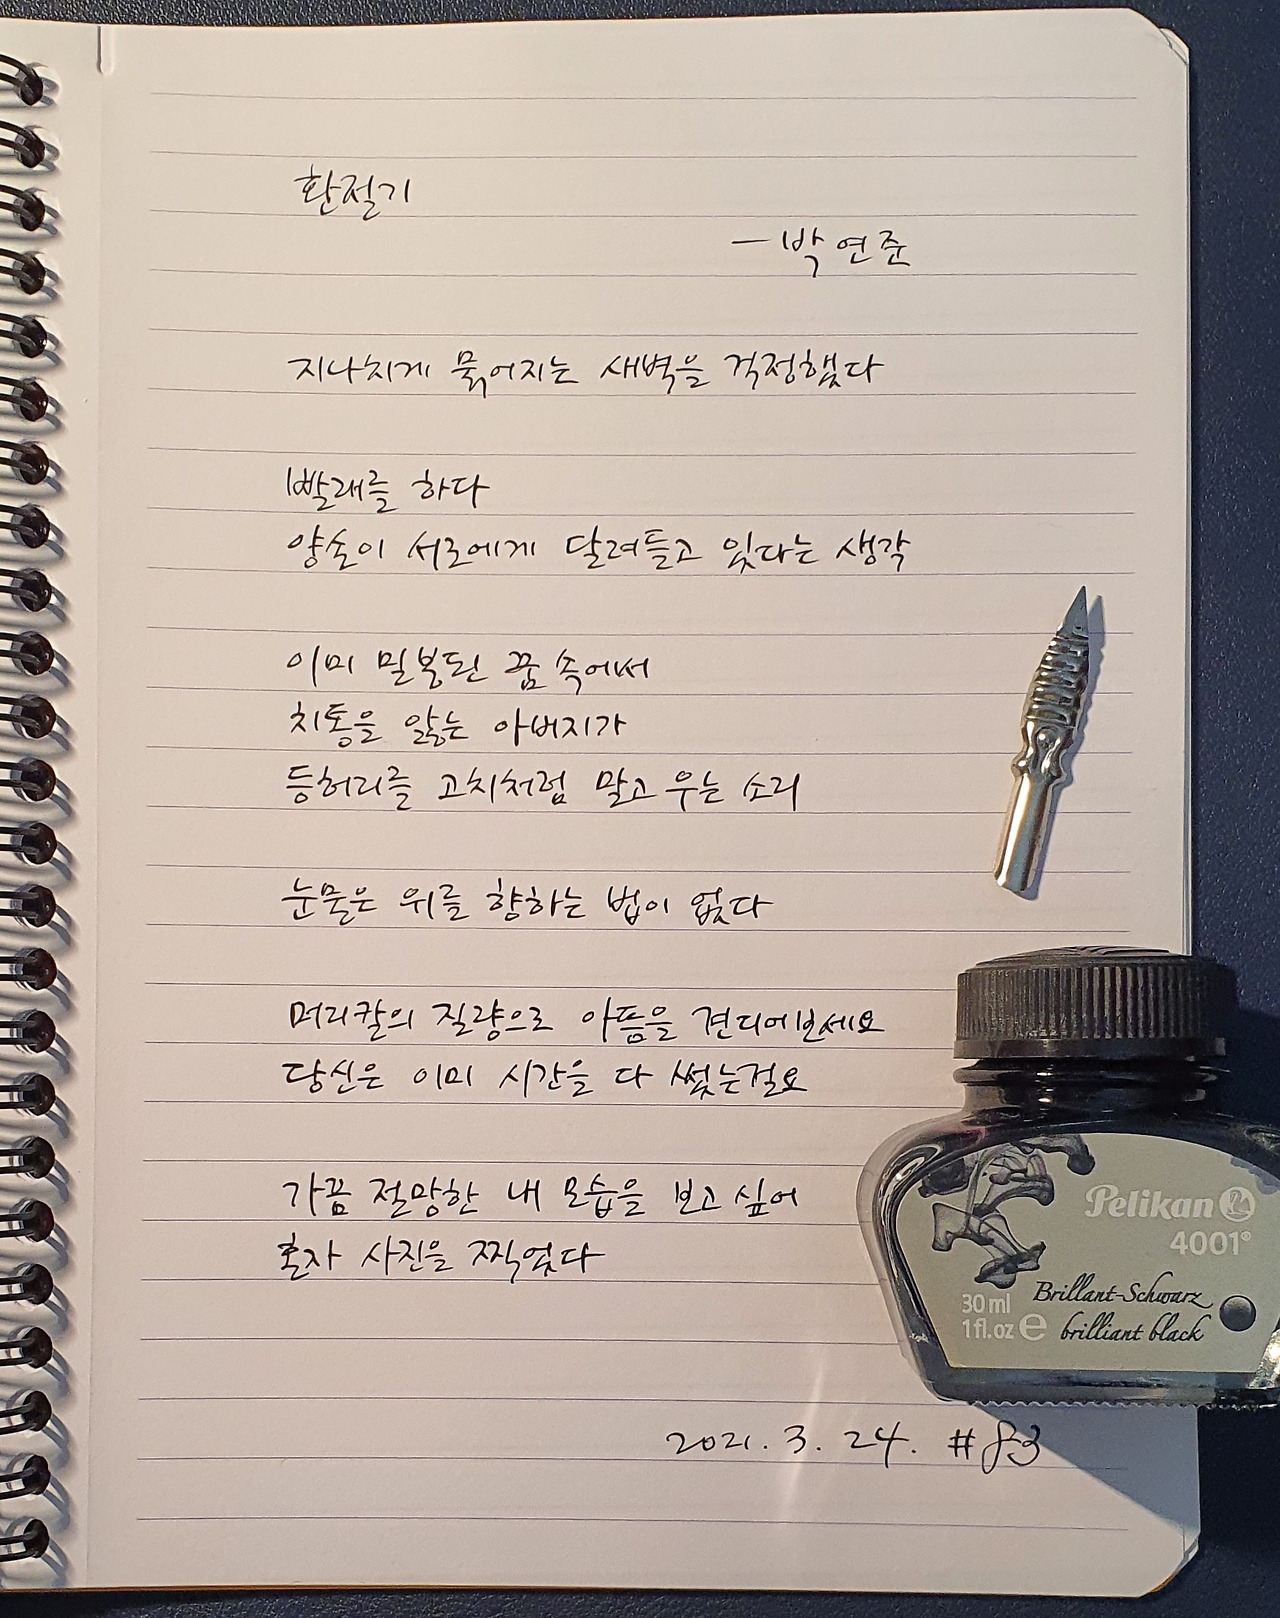 환절기
- 박연준
지나치게 묽어지는 새벽을 걱정했다
빨래를 하다
양손이 서로에게 달려들고 있다는 생각
이미 밀봉된 꿈 속에서
치통을 앓는 아버지가
등허리를 고치처럼 말고 우는 소리
눈물은 위를 향하는 법이 없다
머리칼의 질량으로 아픔을 견디어보세요
당신은 이미 시간을 다 썼는걸요
가끔 절망한 내 모습을 보고 싶어
혼자 사진을 찍었다
Pelikan
4001®
30 ml
1 fl.oz e
Brillant-Schwarz
brilliant black
2021. 3. 24. #83